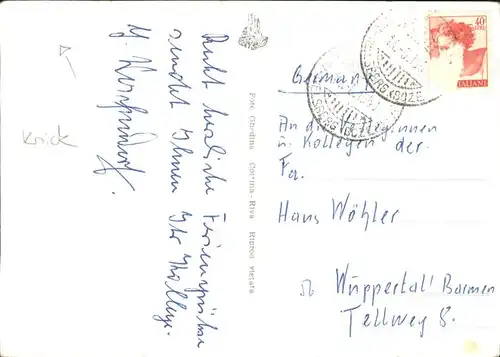 Recht herzliche Feriengrüße
sendet Ihnen Ihr Kollege.
Knick
Foto Ghedina Cortina-Riva Riprod. vietata
40
ITALIANE
Germania
An die Kolleginnen
u. Kollegen der
Fa.
Hans Wöhler
56 Wuppertal Barmen
Tellweg 8.